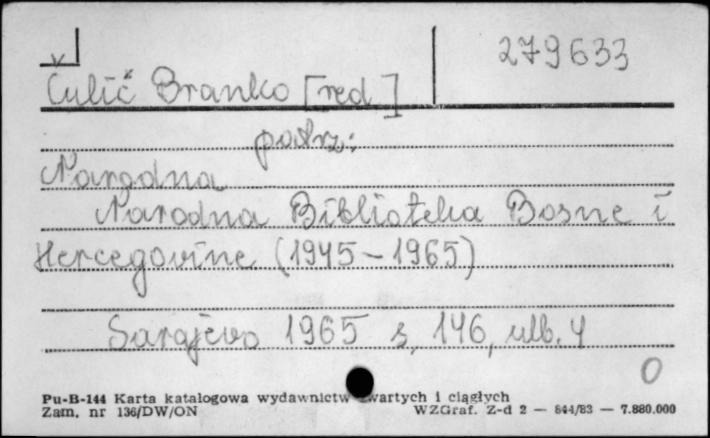 279633
Čulič Branko [red]
patrz:
Narodna
Narodna Biblioteka Bosne i
Hercegovine (1945-1965)
Sarajevo 1965 s, 146, ulb. 4
0
Pu-B-144 Karta katalogowa wydawnictw zwartych i ciągłych
Zam. nr 136/DW/ON WZGraf. Z-d 2 — 844/83 — 7.880.000